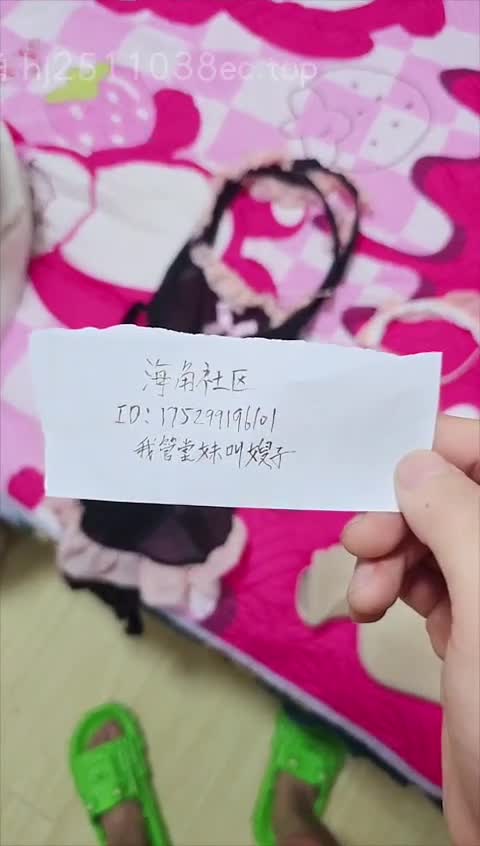 hj2511038ec.top
海角社区
ID: 175299196101
我管堂妹叫嫂子